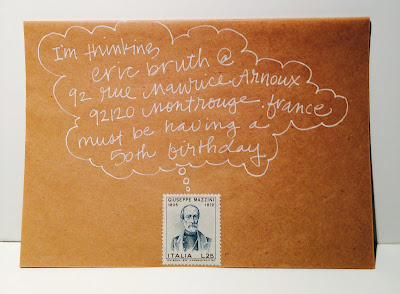 I'm thinking
eric bruth @
92 rue Maurice Arnoux
92120 montrouge. france
must be having a
50th birthday
GIUSEPPE MAZZINI
1805 1872
ITALIA L.25